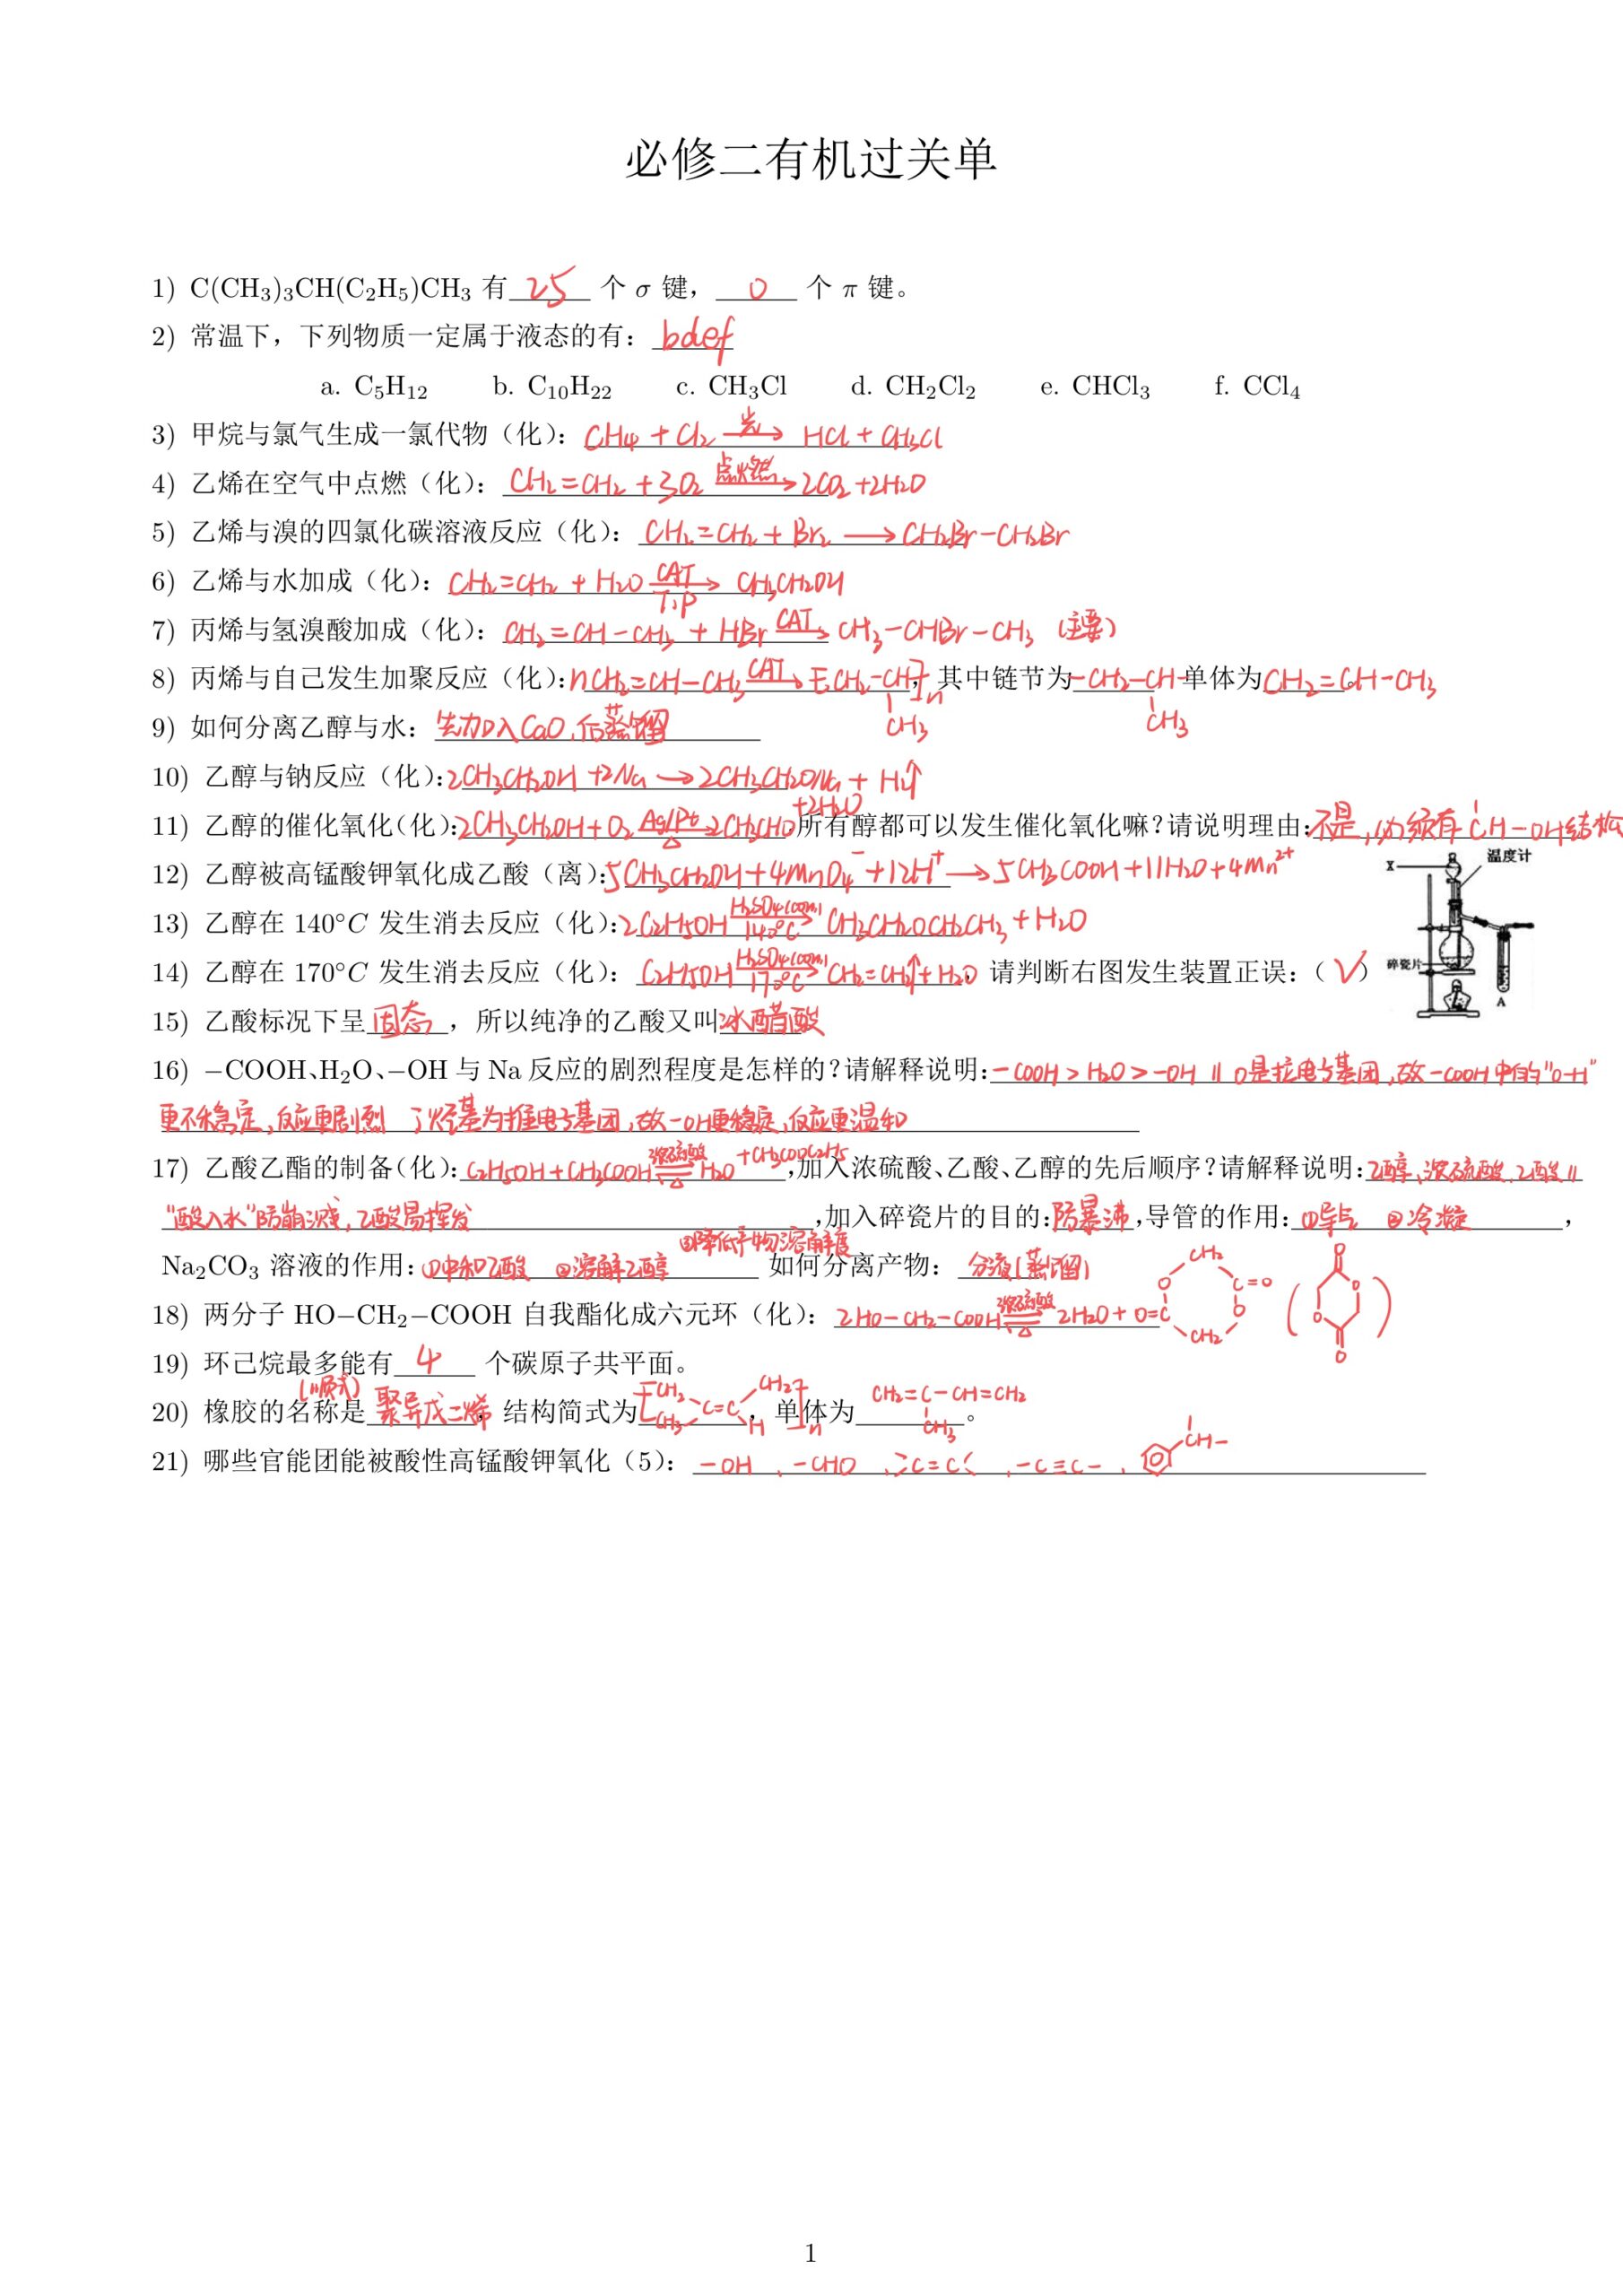 必修二有机过关单
1) C(CH₃)₃CH(C₂H₅)CH₃ 有 25 个 σ 键， 0 个 π 键。
2) 常温下，下列物质一定属于液态的有： bdef
a. C₅H₁₂ b. C₁₀H₂₂ c. CH₃Cl d. CH₂Cl₂ e. CHCl₃ f. CCl₄
3) 甲烷与氯气生成一氯代物（化）： CH₄ + Cl₂ —光→ HCl + CH₃Cl
4) 乙烯在空气中点燃（化）： CH₂=CH₂ + 3O₂ —点燃→ 2CO₂+2H₂O
5) 乙烯与溴的四氯化碳溶液反应（化）： CH₂=CH₂ + Br₂ ⟶ CH₂Br-CH₂Br
6) 乙烯与水加成（化）： CH₂=CH₂ + H₂O —CAT/T.P→ CH₃CH₂OH
7) 丙烯与氢溴酸加成（化）： CH₂=CH-CH₃ + HBr —CAT→ CH₃-CHBr-CH₃ (主要)
8) 丙烯与自己发生加聚反应（化）：nCH₂=CH-CH₃ —CAT→ [CH₂-CH(CH₃)]n，其中链节为 -CH₂-CH(CH₃)- 单体为 CH₂=CH-CH₃。
9) 如何分离乙醇与水： 先加入CaO，后蒸馏
10) 乙醇与钠反应（化）：2CH₃CH₂OH +2Na ⟶ 2CH₃CH₂ONa + H₂↑
11) 乙醇的催化氧化（化）：2CH₃CH₂OH+O₂ —Ag/Pt/△→ 2CH₃CHO+2H₂O，所有醇都可以发生催化氧化嘛？请说明理由：不是，必须有 -CH-OH结构
12) 乙醇被高锰酸钾氧化成乙酸（离）：5CH₃CH₂OH+4MnO₄⁻+12H⁺ ⟶ 5CH₃COOH+11H₂O+4Mn²⁺
温度计
X
13) 乙醇在 140°C 发生消去反应（化）：2C₂H₅OH —H₂SO₄(con.)/140°C→ CH₃CH₂OCH₂CH₃+H₂O
14) 乙醇在 170°C 发生消去反应（化）： C₂H₅OH —H₂SO₄(con.)/170°C→ CH₂=CH₂↑+H₂O，请判断右图发生装置正误：（√）
碎瓷片
A
15) 乙酸标况下呈 固态 ，所以纯净的乙酸又叫 冰醋酸
16) −COOH、H₂O、−OH 与 Na 反应的剧烈程度是怎样的？请解释说明：-COOH > H₂O > -OH // O是拉电子基团，故-COOH中的"O-H"
更不稳定，反应更剧烈 了烃基为推电子基团，故-OH更稳定，反应更温和
17) 乙酸乙酯的制备（化）： C₂H₅OH+CH₃COOH ⇌浓硫酸/△ H₂O +CH₃COOC₂H₅ ，加入浓硫酸、乙酸、乙醇的先后顺序？请解释说明：乙醇，浓硫酸，乙酸 //
"酸入水"防崩溅，乙酸易挥发 ，加入碎瓷片的目的：防暴沸，导管的作用： ①导气 ②冷凝 ，
Na₂CO₃ 溶液的作用：①中和乙酸 ②溶解乙醇 ③降低产物溶解度 如何分离产物： 分液(蒸馏)
18) 两分子 HO−CH₂−COOH 自我酯化成六元环（化）： 2HO-CH₂-COOH ⇌浓硫酸/△ 2H₂O + O=C O CH₂ C=O O CH₂ ( O O O O )
19) 环己烷最多能有 4 个碳原子共平面。
20) 橡胶的名称是 (顺式)聚异戊二烯，结构简式为 [CH₂ CH₃ C=C CH₂ H]n ，单体为 CH₂=C(CH₃)-CH=CH₂ 。
21) 哪些官能团能被酸性高锰酸钾氧化（5）： -OH ，-CHO ，>C=C< ，-C≡C- ，⌬-CH-
1